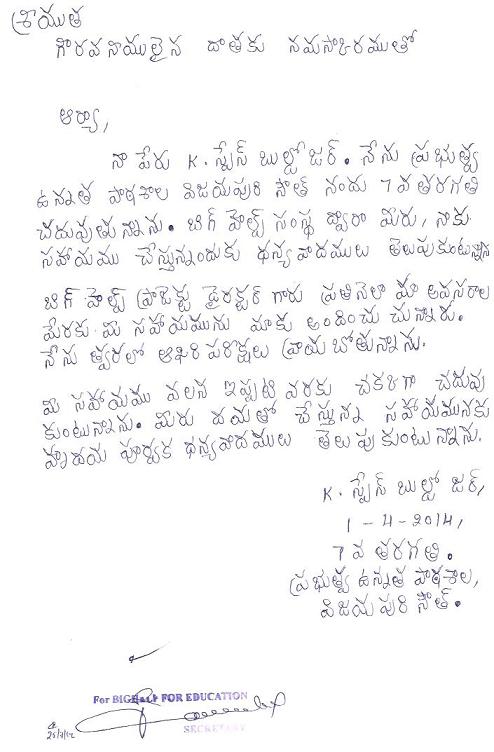 శ్రీయుత
గౌరవనీయులైన దాతకు నమస్కారములతో
ఆర్యా,
నా పేరు K. స్నేన్ బుల్డోజర్. నేను ప్రభుత్వ
ఉన్నత పాఠశాల విజయపురి సౌత్ నందు 7వ తరగతి
చదువుతున్నాను. బిగ్ హెల్ప్ సంస్థ ద్వారా మీరు, నాకు
సహాయము చేస్తున్నందుకు ధన్యవాదములు తెలుపుకుంటున్నాను
బిగ్ హెల్ప్ ప్రాజెక్టు డైరెక్టర్ గారు ప్రతినెలా మా అవసరాల
మేరకు మీ సహాయమును మాకు అందించుచున్నారు.
నేను త్వరలో ఆఖరి పరీక్షలు వ్రాయబోతున్నాను.
మీ సహాయము వలన ఇప్పటి వరకు చక్కగా చదువు
కుంటున్నాను. మీరు దయతో చేస్తున్న సహాయమునకు
హృదయ పూర్వక ధన్యవాదములు తెలుపుకుంటున్నాను.
K. స్నేన్ బుల్డోజర్,
1-4-2014,
7వ తరగతి.
ప్రభుత్వ ఉన్నత పాఠశాల,
విజయపురి సౌత్.
For BIGHELP FOR EDUCATION
SECRETARY